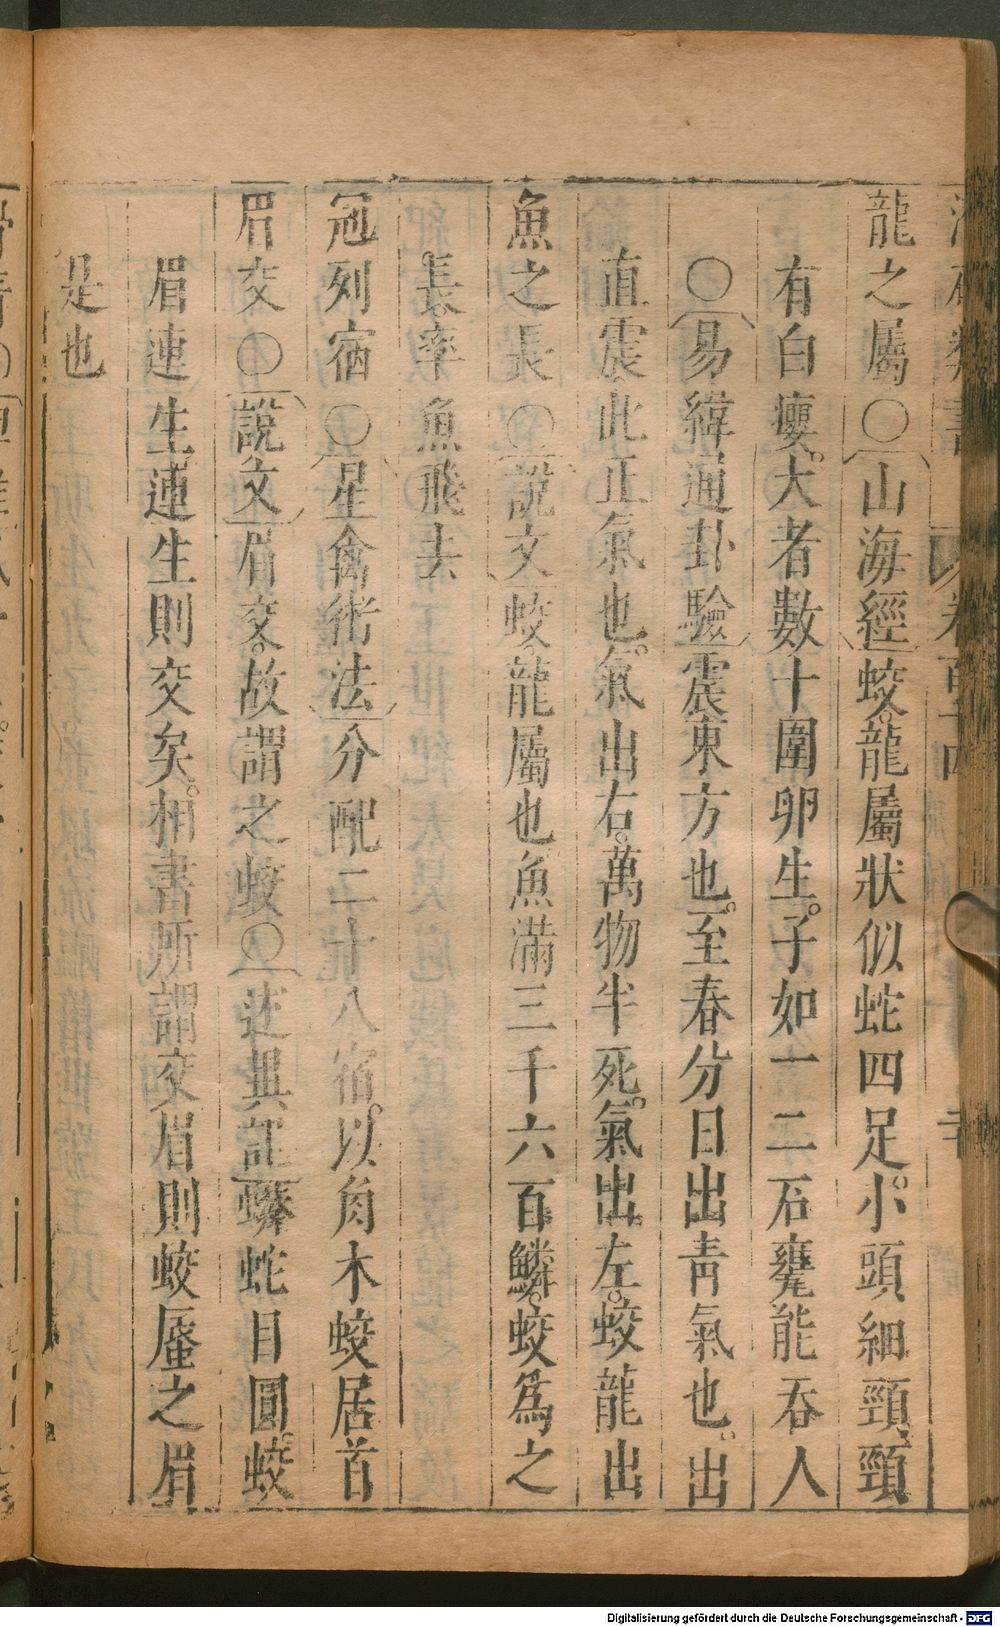 龍之屬〇山海經蛟龍屬狀似蛇四足小頭細頸頸
有白癭大者數十圍卵生子如一二石甕能吞人
〇易緯通卦驗震東方也至春分日出青氣也出
直震此正氣也氣出右萬物半死氣出左蛟龍出
魚之長〇說文蛟龍屬也魚滿三千六百鱗蛟爲之
長率魚飛去
冠列宿〇星禽術法分配二十八宿以角木蛟居首
眉交〇說文眉交故謂之蛟〇述異記蟒蛇目圓蛟
眉連生連生則交矣相書所謂交眉則蛟蜃之眉
是也
Digitalisierung gefördert durch die Deutsche Forschungsgemeinschaft - DFG